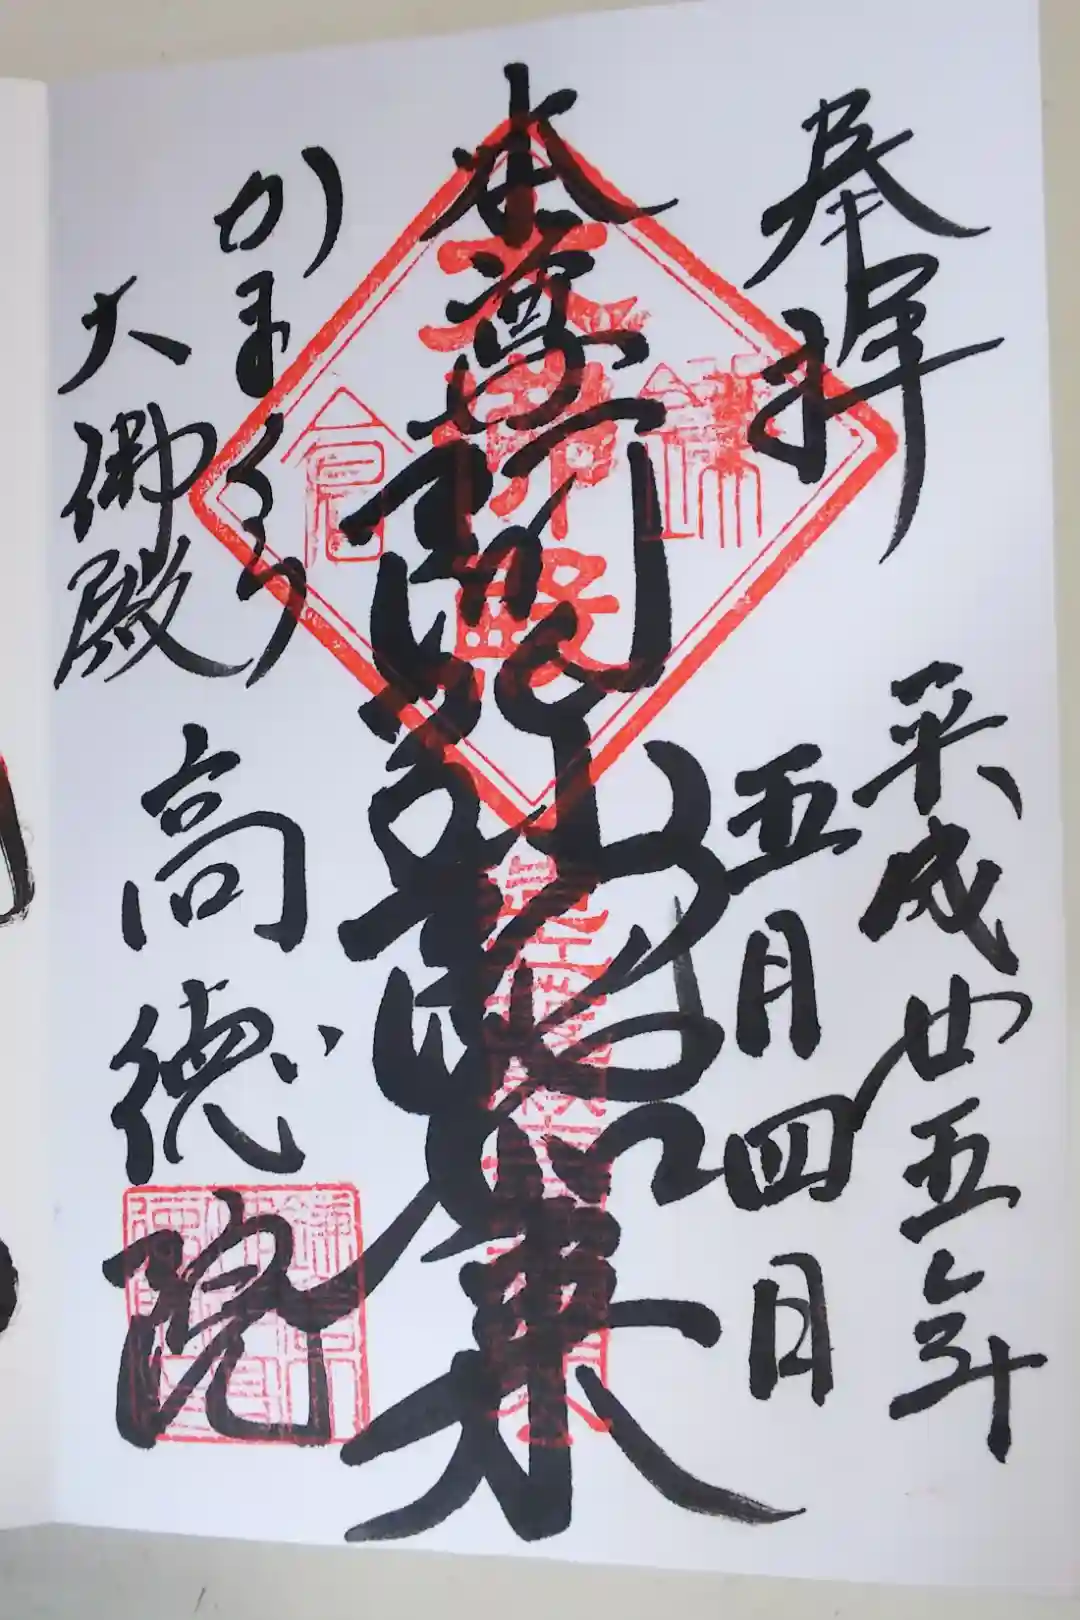 奉拝
平成廿五年
五月四日
本尊阿彌陀如来
かまくら
大佛殿
高徳院
鎌倉